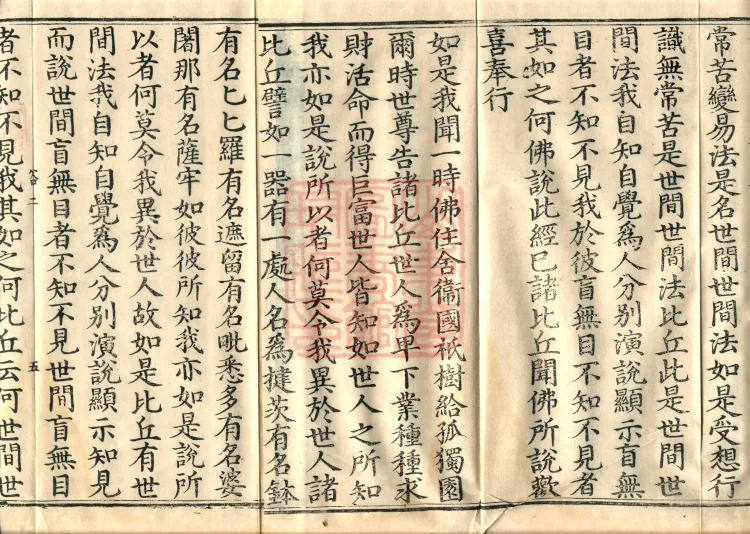 常苦變易法是名世間世間法如是受想行
識無常苦是世間世間法比丘此是世間世
間法我自知自覺爲人分別演說顯示盲無
目者不知不見我於彼盲無目不知不見者
其如之何佛說此經已諸比丘聞佛所說歡
喜奉行
如是我聞一時佛住舍衞國祇樹給孤獨園
爾時世尊告諸比丘世人爲卑下業種種求
財活命而得巨富世人皆知如世人之所知
我亦如是說所以者何莫令我異於世人諸
比丘譬如一器有一處人名爲揵茨有名鉢
有名匕匕羅有名遮留有名毗悉多有名婆
闍那有名薩牢如彼彼所知我亦如是說所
以者何莫令我異於世人故如是比丘有世
間法我自知自覺爲人分別演說顯示知見
而說世間盲無目者不知不見世間盲無目
五
者不知不見我其如之何比丘云何世間世